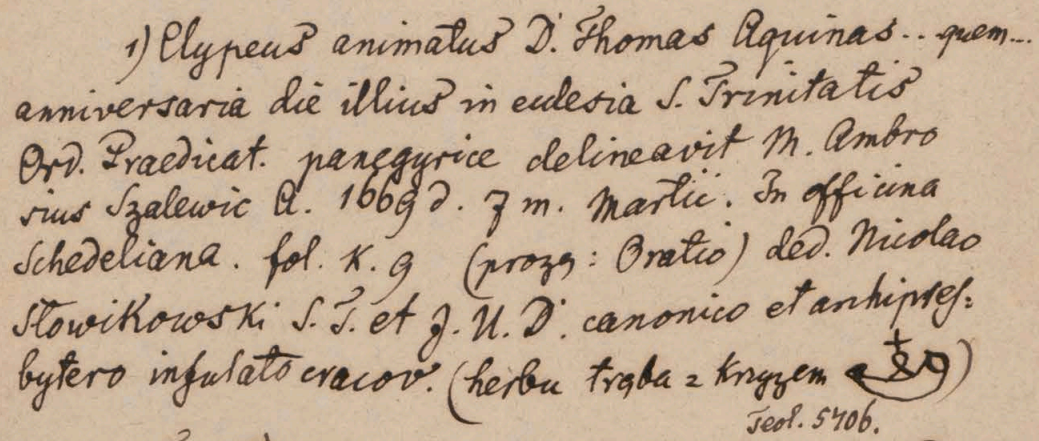 1) Clypeus animatus D. Thomas Aquinas.. quem...
anniversaria die illius in eclesia S. Trinitatis
Ord. Praedicat. panegyrice delineavit M. Ambro
sius Szalewic A. 1669 d. 7 m. Martii. In officina
Schedeliana. fol. K. 9 (prozą: Oratio) ded. Nicolao
Słowikowski S. T. et J. U. D. canonico et archipres=
bytero infulato cracov. (herbu trąba z krzyżem )
Teol. 5706.